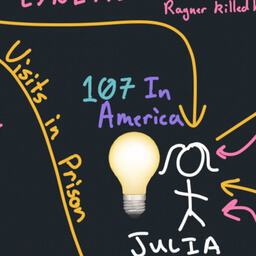 Ragner killed
Visits in Prison
107 In
America
JULIA